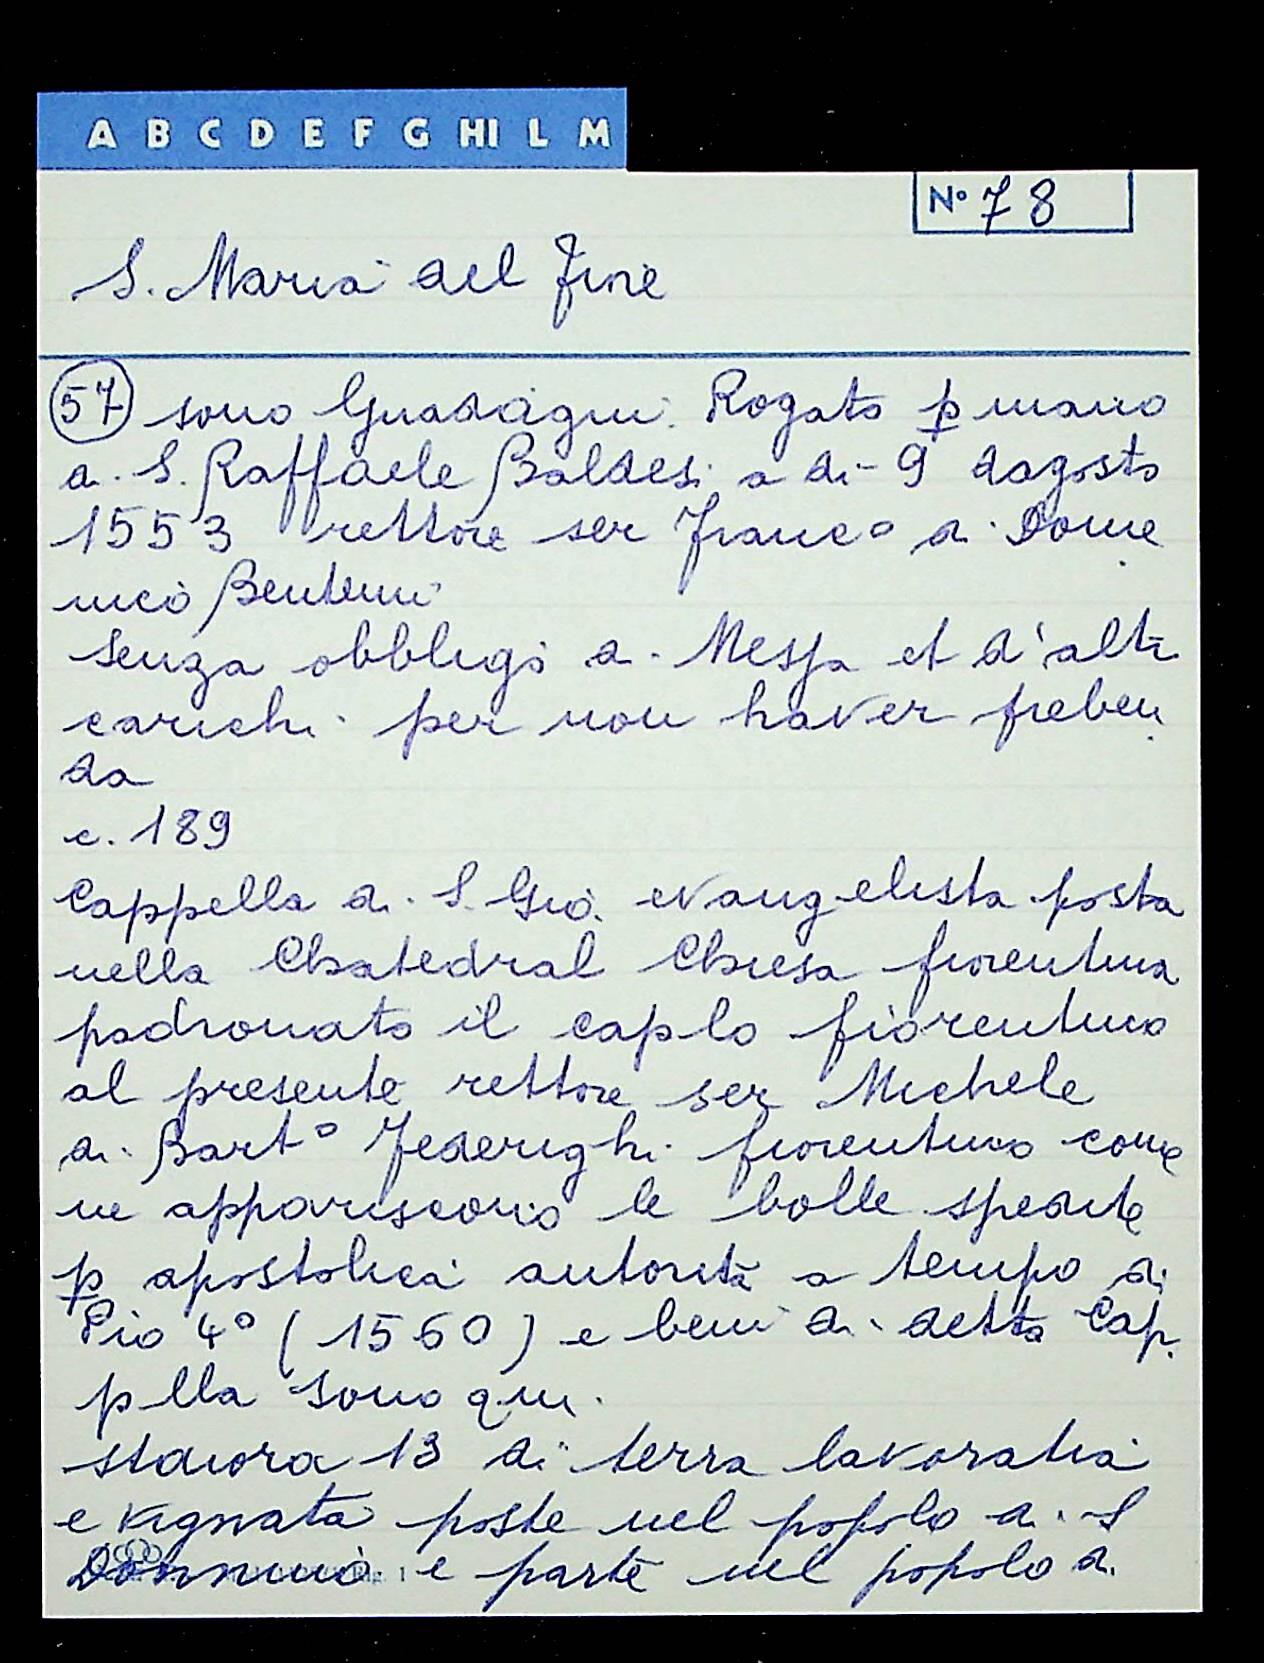 A B C D E F G HI L M
No 78
S. Maria del Fiore
57 sono Guadagni. Rogato p mano
di S. Raffaele Baldesi a di 9 dagosto
1553 rettore ser Franc° di Dome
nico Bentem
Senza obbligo di Messa et d'alti
carichi per non haver preben
da
c. 189
Cappella di S. Gio. evangelista posta
nella Chatedral Chiesa fiorentina
padronato il caplo fiorentino
al presente rettore ser Michele
di Bart° Federighi fiorentino come
ne appariscono le bolle spedite
p apostolica autorità a tempo di
Pio 4° (1560) e beni di detta Cap.
pella sono qui.
staiora 13 di terra lavoratia
e vignata poste nel popolo di S
Donnino e parte nel popolo di